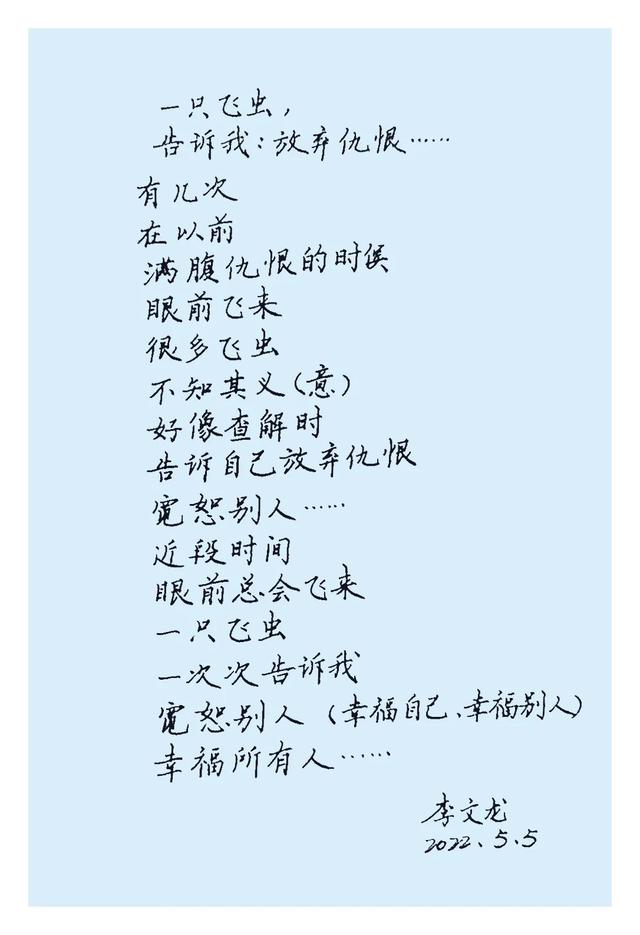 一只飞虫，
告诉我：放弃仇恨……
有几次
在以前
满腹仇恨的时候
眼前飞来
很多飞虫
不知其义（意）
好像查解时
告诉自己放弃仇恨
宽恕别人……
近段时间
眼前总会飞来
一只飞虫
一次次告诉我
宽恕别人（幸福自己、幸福别人）
幸福所有人……
李文龙
2022.5.5